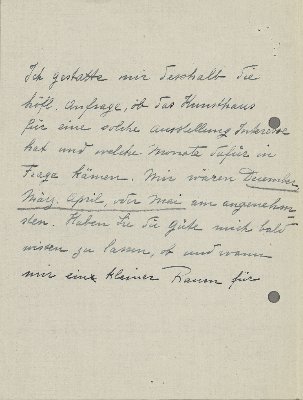 Ich gestatte mir deshalb die
höfl. Anfrage, ob das Kunsthaus
für eine solche Ausstellung Interesse
hat und welche Monate dafür in
Frage kämen. Mir wären Dezember,
März, April, oder Mai am angenehm-
sten. Haben Sie die Güte mich bald
wissen zu lassen, ob und wann
mir ein kleiner Raum für